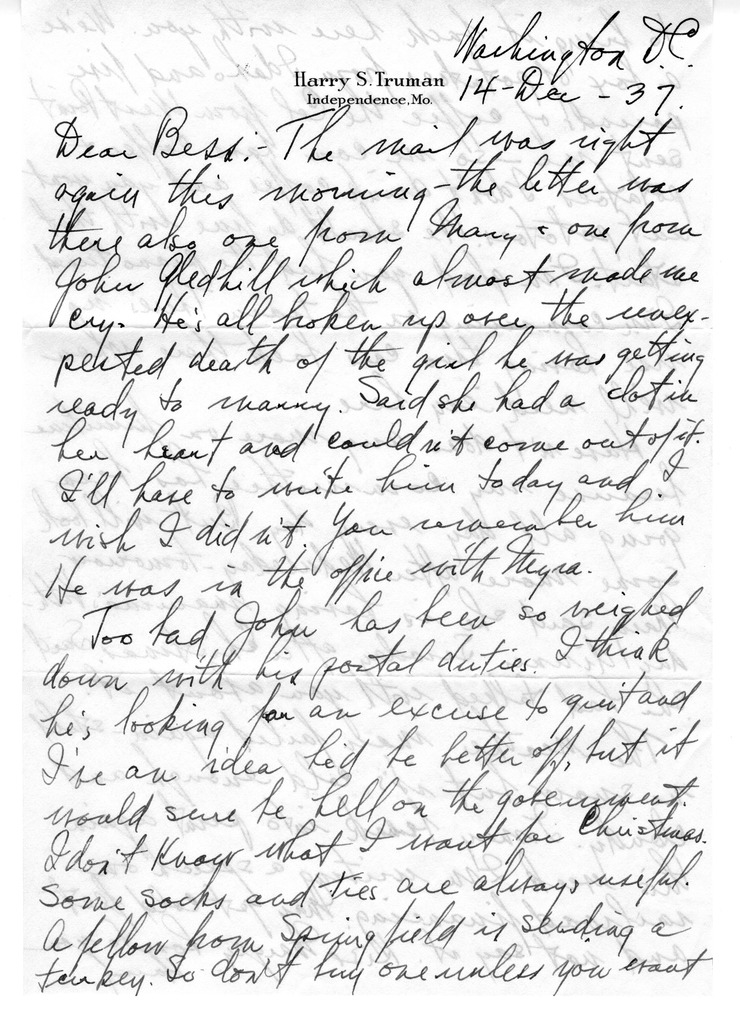 Washington D.C.
Harry S. Truman
Independence, Mo.
14-Dec-37.
Dear Bess:- The mail was right
again this morning-the letter was
there also one from Mary & one from
John Gledhill which almost made me
cry. He's all broken up over the unex-
pected death of the girl he was getting
ready to marry. Said she had a clot in
her heart and couldn't come out of it.
I'll have to write him today and I
wish I didn't. You remember him
He was in the office with Myra.
Too bad John has been so weighed
down with his postal duties. I think
he's looking for an excuse to quit and
I've an idea he'd be better off, but it
would sure be hell on the government.
I don't know what I want for Christmas.
Some socks and ties are always useful.
A fellow from Springfield is sending a
turkey. So don't buy one unless you want